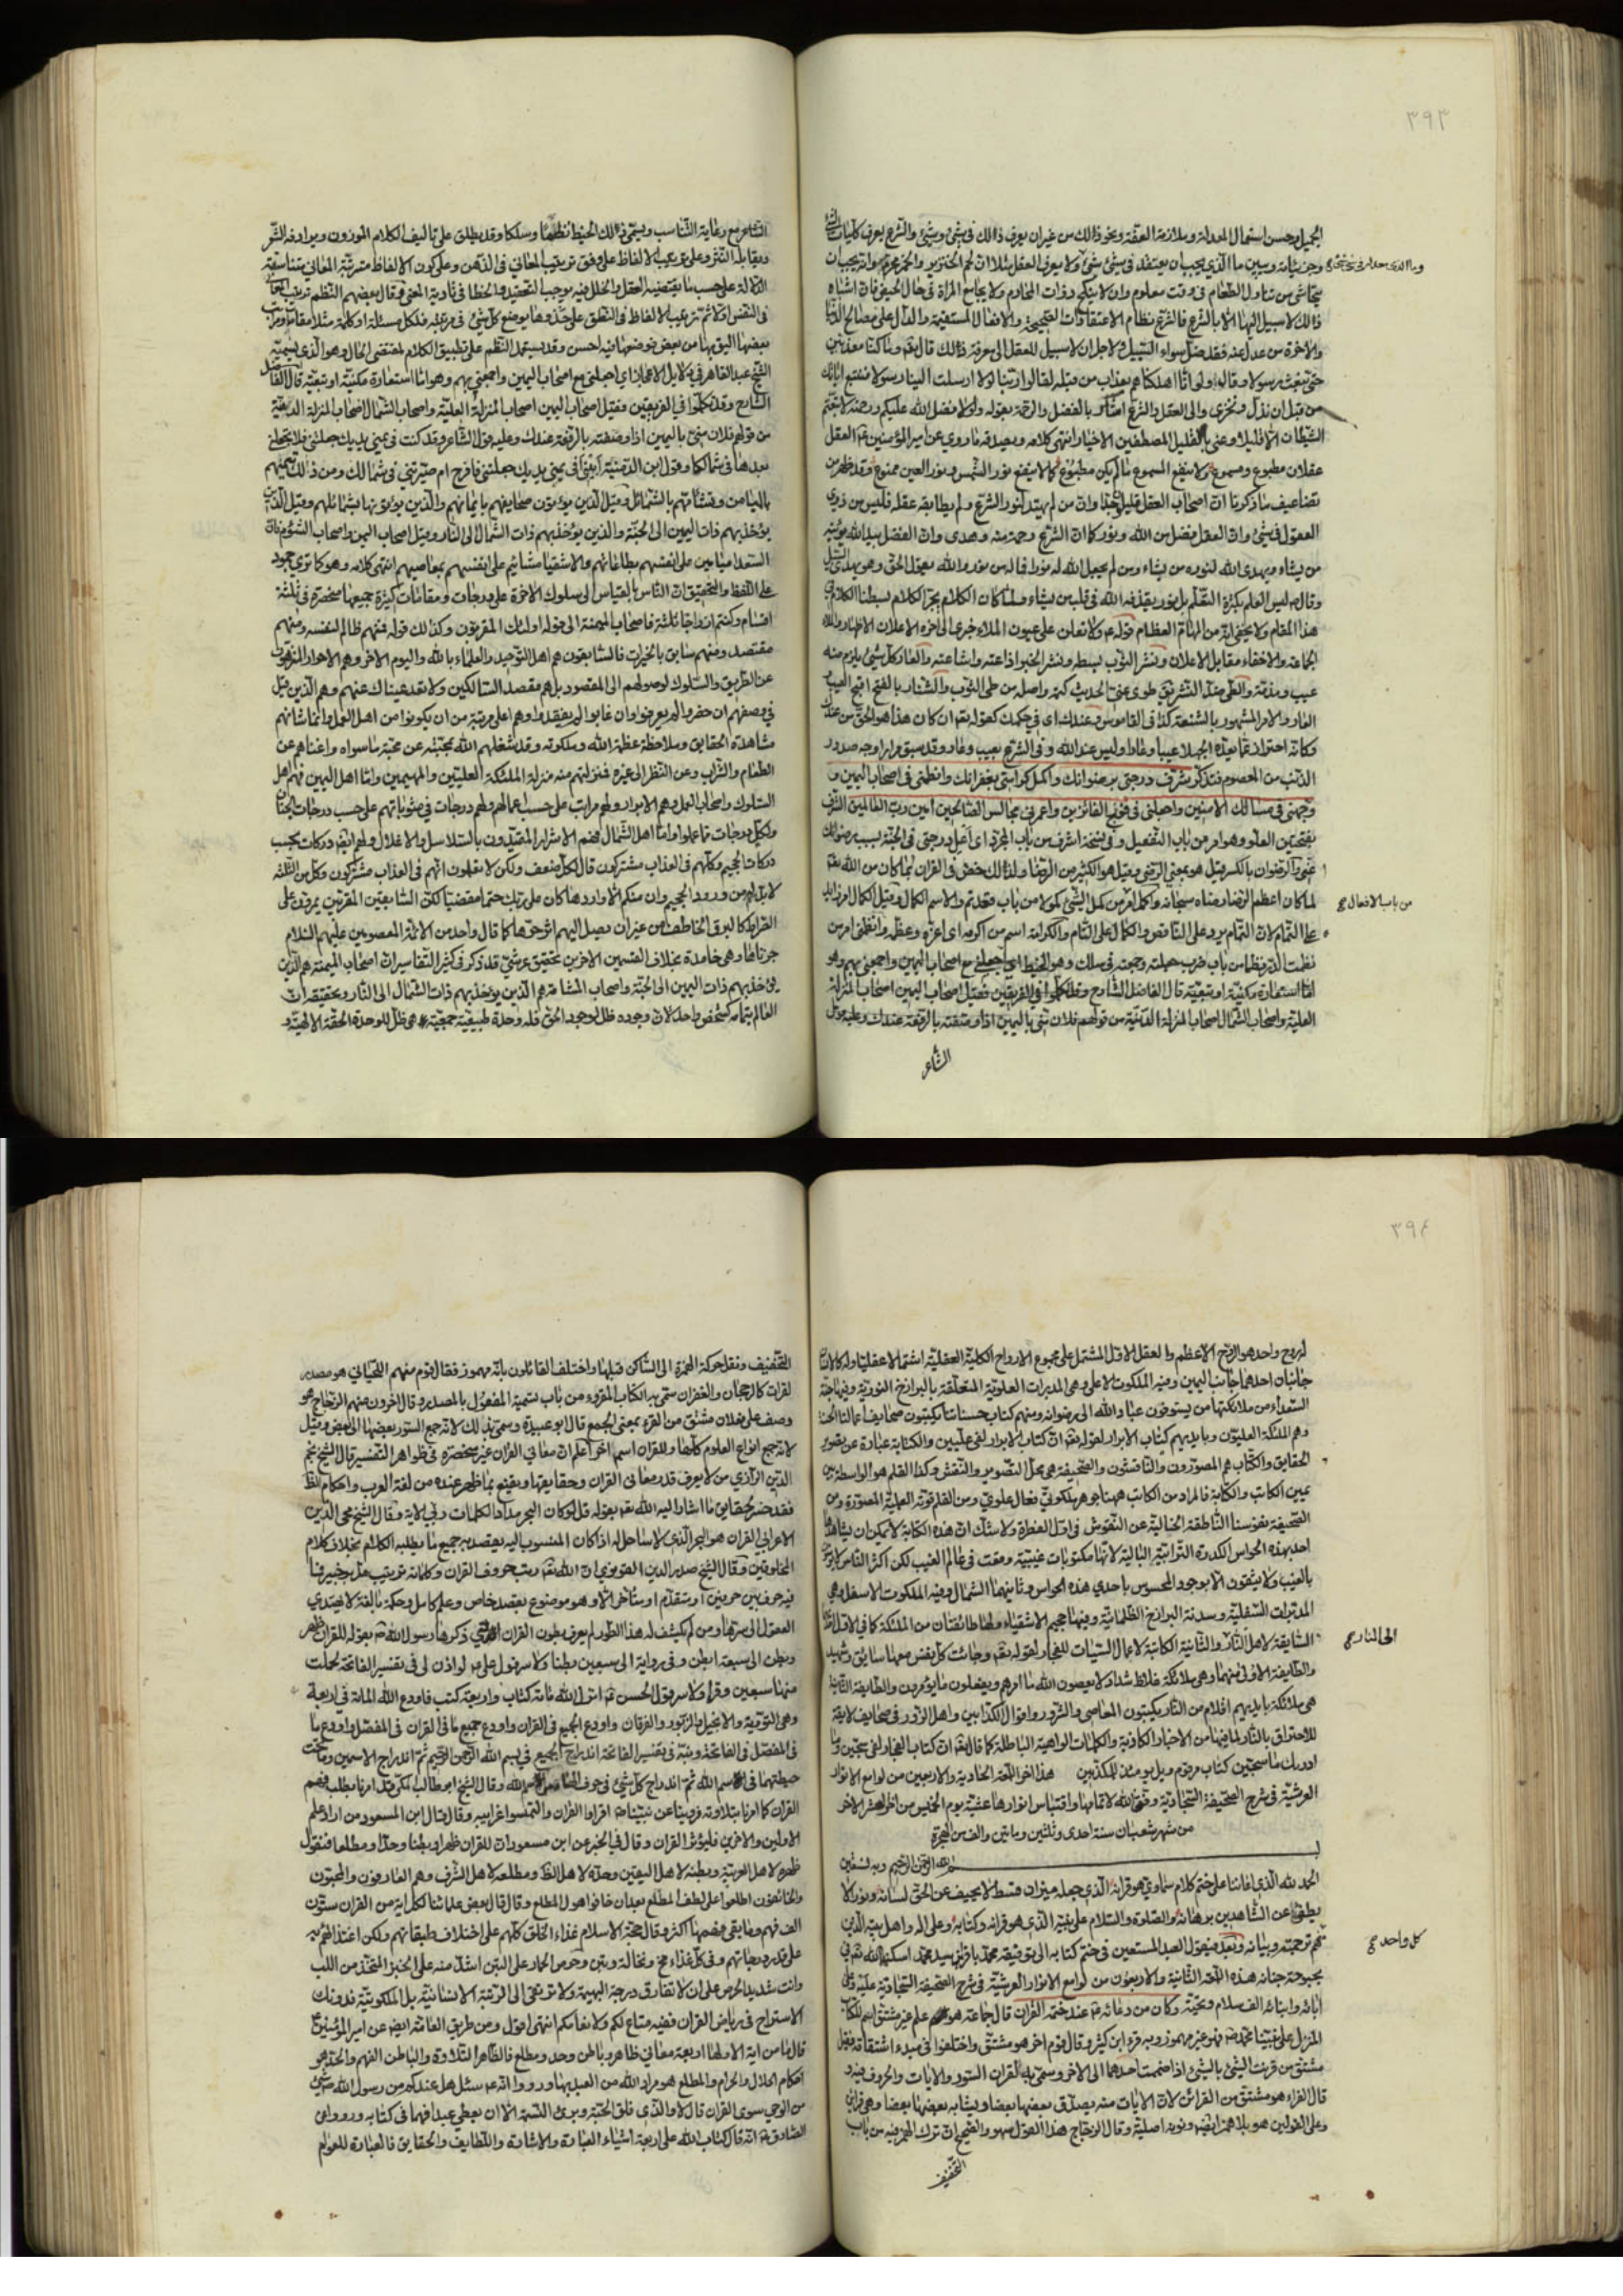 ٣٩٣
الجميل وحسن استعمال المعدلة وملازمة العفّة ونحو ذالك من غير ان يعرف ذالك فى شئ وشئ والشرع يعرف كليات الشئ
وجزئياته ويبين ما الذى يجب ان يعتقد فى شئ شئ ولا يعرف العقل مثلا انّ لحم الخنزير والخمر محرّم وانه يجب ان
يتحاشى من تناول الطعام فى وقت معلوم وان لا ينكح ذوات المحارم ولا يجامع المراة فى حال الحيض فان اشباه
ذالك لا سبيل اليها الا بالشرع فالشرع نظام الاعتقادات الصحيحة والافعال المستقيمة والدالّ على مصالح الدنيا
والاخرة من عدل عنه فقد ضلّ سواء السّبيل ولاجل ان لا سبيل للعقل الى معرفة ذالك قال تعم وما كنا معذبين
حتى نبعث رسولا وقال ولو انّا اهلكناهم بعذاب من قبله لقالوا ربّنا لولا ارسلت الينا رسولا فنتبع اياتك
من قبل ان نذل ونخزى والى العقل والشرع اشار بالفضل والرحمة بقوله ولولا فضل الله عليكم ورحمته لاتّبعتم
الشيطان الا قليلا وعنى بالقليل المصطفين الاخيار انتهى كلامه ويصدقه ما روى عن امير المؤمنين العقل
عقلان مطبوع ومسموع ولا ينفع المسموع ما لم يكن مطبوع كما لا ينفع نور الشمس ونور العين ممنوع وقد ظهر من
تضاعيف ما ذكرنا انّ اصحاب العقل قليل جدّا وانّ من لم يهتد لنور الشرع ولم يطابقه عقله فليس من ذوى
العقول فى شئ وانّ العقل فضل من الله ونور كما انّ الشرع رحمة منه وهدى وانّ الفضل بيد الله يؤتيه
من يشاء ويهدى الله لنوره من يشاء ومن لم يجعل الله له نورا فما له من نور والله يقول الحقّ وهو يهدى السّبيل
وقال ليس العلم بكثرة التعلّم بل نور يقذفه الله فى قلب من يشاء ولمّا كان الكلام يجرّ الكلام بسطنا الكلام فى
هذا المقام ولا يخفى انّه من المهامّ العظام قوله ولا تعلن على عيون الملاء خبرى الى اخره الاعلان الاظهار والملاء
الجماعة والاخفاء مقابل الاعلان ونشر الثوب بسطه ونشر الخبر اذاعته واشاعته والعار كل شئ يلزم منه
عيب ومذمّة والطىّ ضدّ النشر يق طوى عنى الحديث كتمه واصله من طى الثوب والشنار بالفتح اقبح العيب
العار والامر المشهور بالشنعة كذا فى القاموس وعندك اى فى حكمك كقوله تعم ان كان هذا هو الحقّ من عندك
وكانّه احتراز عمّا يعدّه الجهلا عيبا وعارا وليس عند الله وفى الشرع بعيب وعار وقد سبق مرارا وجه صدور
الذنب من المعصوم فتذكّر شرّف درجتى برضوانك واكمل كرامتى بغفرانك وانظمنى فى اصحاب اليمين و
وجّهنى فى مسالك الامنين واجعلنى فى فوج الفائزين واعمر بى مجالس الصالحين امين رب العالمين الشرف
بفتحتين العلو وهو امر من باب التفعيل وفى نسخة اشرف من باب المجرّد اى اعل درجتى فى الجنّة بسبب رضوانك
عنّى والرضوان بالكسر قيل هو بمعنى الرضى وقيل هو الكثير من الرضا ولذالك خصّ فى القران بما كان من الله تعم
لما كان اعظم الرضا رضاه سبحانه واكمل امر من كمل الشئ كمولا من باب قعد تم والاسم الكمال وقيل الكمال امر زايد
على التمام لانّ التمام يرد على الناقص والكمال على التام والكرامة اسم من اكرمه اى اعزّه وعظّمه وانظمنى امر من
نظمت الدرّ نظما من باب ضرب جعلته وجمعته فى سلك وهو الخيط اى اجعلنى مع اصحاب اليمين واجمعنى بهم وهو
امّا استعارة مكنيّة او تبعيّة قال الفاضل الشارح وقد تكلّموا فى الفريقين فقيل اصحاب اليمين اصحاب المنزلة
العليّة واصحاب الشمال اصحاب المنزلة الدنيّة من قولهم فلان منى باليمين اذا وصفته بالرفعة عندك وعليه قول
الشاعر
وما الذى معدله فى شئ شئ خ
من باب الافعال صح
الشاعر مع رعاية التناسب ويسمّى ذالك الخيط نظاما وسلكا وقد يطلق على تاليف الكلام الموزون ويرادفه الشعر
ويقابله النثر وعلى ترتيب الالفاظ على وفق ترتيب المعانى فى الذهن وعلى كون الالفاظ مترتبة المعانى متناسقة
الدّلالة على حسب ما يقتضيه العقل والخلل فيه يوجب التعقيد والخطا فى تادية المعنى وقال بعضهم النظم ترتيب المعانى
فى النفس اولا ثم ترتيب الالفاظ فى النطق على حذوها بوضع كل شئ فى مرتبته فلكل مسئلة او كلمة مثلا مقام ومرتبة
بعضها اليق بها من بعض فوضعها فيه احسن وقد يستعمل النظم على تطبيق الكلام لمقتضى الحال وهو الّذى يسميه
الشيخ عبد القاهر فى دلايل الاعجاز اى اجعلنى مع اصحاب اليمين واجمعنى بهم وهو امّا استعارة مكنيّة او تبعيّة قال الفاضل
الشارح وقد تكلّموا فى الفريقين فقيل اصحاب اليمين اصحاب المنزلة العليّة واصحاب الشمال اصحاب المنزلة الدنيّة
من قولهم فلان منّى باليمين اذا وصفته بالرفعة عندك وعليه قول الشاعر وقد كنت فى يمنى يديك جعلتنى فلا تجعلنى
بعدها فى شمالكا وقول ابن الدمينة ابينى افى يمنى يديك جعلتنى فافرح ام صيّرتنى فى شمالك ومن ذالك تيمنهم
بالميامن وتشأمهم بالشمائل وقيل الذين يؤتون صحايفهم بايمانهم والّذين يؤتونها بشمائلهم وقيل الّذين
يؤخذ بهم ذات اليمين الى الجنّة والذين يؤخذ بهم ذات الشمال الى النار وقيل اصحاب اليمن واصحاب الشؤم فان
السّعداء ميامين على انفسهم بطاعاتهم والاشقيا مشائيم على انفسهم بمعاصيهم انتهى كلامه وهو كما ترى جمود
على اللفظ والتحقيق انّ النّاس بالقياس الى سلوك الاخرة على درجات ومقامات كثيرة جميعها منحصرة فى ثلثة
اقسام وكنتم ازواجا ثلثة فاصحاب الميمنة الى قوله اولئك المقربون وكذالك قوله فمنهم ظالم لنفسه ومنهم
مقتصد ومنهم سابق بالخيرات فالسّابقون هم اهل التّوحيد والعلماء بالله واليوم الاخر وهم الاحرار المنزهون
عن الطريق والسّلوك لوصولهم الى المقصود بل هم مقصد السّالكين ولا تعد عيناك عنهم وهم الّذين قيل
فى وصفهم ان حضروا لم يعرفوا وان غابوا لم يفتقدوا وهم اعلى مرتبة من ان يكونوا من اهل العمل وانّما شانهم
مشاهدة الحقايق وملاحظة عظمة الله وملكوته وقد شغلهم الله بمحبّته عن محبّة ما سواه واغناهم عن
الطعام والشراب وعن النّظر الى غيره فمنزلتهم منه منزلة الملئكة العليّين والمهيمين وامّا اهل اليمين فهم اهل
السّلوك واصحاب العمل وهم الابرار ولهم مراتب على حسب اعمالهم ولهم درجات فى مثوباتهم على حسب درجات الجنان
ولكلّ درجات ممّا عملوا وامّا اهل الشّمال فهم الاشرار المقيّدون بالسّلاسل والاغلال ولهم ايضا دركات بحسب
دركات الجحيم وكلّهم فى العذاب مشتركون قال لكلّ ضعف ولكن لا تعلمون انّهم فى العذاب مشتركون وكلّ من الثلثة
لا بدّ لهم من ورود الجحيم وان منكم الّا واردها كان على ربّك حتما مقضيّا لكنّ السّابقين المقربين يمرّون على
الصّراط كالبرق الخاطف من غير ان يصل اليهم اثر حرّها كما قال واحد من الائمّة المعصومين عليهم السّلام
جزناها وهى خامدة بخلاف القسمين الاخرين تحقيق عرشىّ قد ذكر فى كثير التفاسير انّ اصحاب الميمنة هم الّذين
يؤخذ بهم ذات اليمين الى الجنّة واصحاب المشامة هم الّذين يؤخذ بهم ذات الشمال الى النّار وتحقيقه انّ
العالم بتمامه كشخص واحد لانّ وجوده ظلّ لوجود الحقّ فله وحدة طبيعيّة جمعيّة هى ظلّ للوحدة الحقّة الالهيّة و
٣٩٤
له روح واحد هو الرّوح الاعظم والعقل الاوّل المشتمل على مجموع الارواح الكليّة العقليّة اشتمالا عقليّا وله كالانسان
جانبان احدهما جانب اليمين وفيه الملكوت الاعلى وهى المدبرات العلويّة المتعلّقة بالبرازخ النوريّة وفيها جنّة
السّعداء من ملائكتها من يستوفون عباد الله الى رضوانه ومنهم كتاب حسناتنا يكتبون صحايف اعمالنا الحسنة
وهم الملئكة العلّيّون وبايديهم كتاب الابرار لقوله تعم انّ كتاب الابرار لفى علّيين والكتابة عبارة عن تصوير
الحقايق والكتّاب هم المصوّرون والناقشون والصّحيفة هى محلّ التصوير والنقش وكذا القلم هو الواسطة بين
يمين الكاتب والكتابة فالمراد من الكاتب ههنا جوهر ملكوتىّ فعال علوىّ ومن القلم قوّته العمليّة المصوّرة ومن
الصّحيفة نفوسنا الناطقة الخيالية عن النّقوش فى اوّل الفطرة ولا شكّ انّ هذه الكتابة لا يمكن ان يشاهدها
احد بهذه الحواس الكدرة الترابيّة البالية لانها مكتوبات غيبيّة وقعت فى عالم الغيب لكن اكثر النّاس لا يؤمنون
بالغيب ولا يثقون الا بوجود المحسوس باحدى هذه الحواس وثانيهما الشمال وفيه الملكوت الاسفل وهى
المدبّرات السّفليّة وسدنة البرازخ الظلمانيّة وفيها جحيم الاشقياء ولها طائفتان من الملئكة كما فى الاول
السّابقة لاهل النّار والثانية الكاتبة لاعمال السيّئات للفجار لقوله تعم وجائت كلّ نفس معها سائق وشهيد
والطايفة الاولى منهما وهى ملائكة غلاظ شداد لا يعصون الله ما امرهم ويفعلون ما يؤمرون والطايفة الثانية
هى ملائكة بايديهم اقلام من النّار يكتبون المعاصى والشرور واقوال الكذّابين واهل الزّور فى صحايف لايقة
للاحتراق بالنّار لما فيها من الاخبار الكاذبة والكلمات الواهية الباطلة كما قال تعم انّ كتاب الفجّار لفى سجّين وما
ادريك ما سجّين كتاب مرقوم ويل يومئذ للمكذّبين هذا اخر اللمعة الحادية والاربعين من لوامع الانوار
العرشيّة فى شرح الصّحيفة السّجّاديّة وفّق الله لاتمامها واقتباس انوارها عشيّة يوم الخميس من اخر العشر الاخر
من شهر شعبان سنة احدى وثلثين ومأتين والف من الهجرة
بسم الله الرّحمن الرّحيم وبه نستعين
الحمد لله الّذى اعاننا على ختم كلام سماوىّ هو قرانه الّذى جعله ميزان قسط لا يحيف عن الحقّ لسانه ونور لا
يطفئ عن الشّاهدين برهانه والصّلوة والسّلام على نبيّه الّذى هو قرانه وكتابه وعلى اله واهل بيته الّذين
هم ترجمته وبيانه وبعد فيقول العبد المستعين فى ختم كتابه الى توفيقه محمّد باقر بن سيد محمّد اسكنهما الله تعم فى
بحبوحة جنانه هذه اللمعة الثانية والاربعون من لوامع الانوار العرشيّة فى شرح الصحيفة السّجّاديّة عليه وعلى
ابائه وابنائه الف سلام وتحيّة وكان من دعائه عند ختمه القران قال جماعة هو علم غير مشتق اسم للكتاب
المنزل على نبيّنا محمّد فهو غير مهموز وبه قرء ابن كثير وقال قوم اخر هو مشتقّ واختلفوا فى مبدء اشتقاقه فقيل
مشتق من قرنت الشئ بالشئ اذا ضممت احدهما الى الاخر وسمّى به القران السّور والايات والحروف فيه و
قال الفراء هو مشتق من القرائن لانّ الايات منه يصدّق بعضها بعضا ويشابه بعضها بعضا وهى قراين
وعلى القولين هو بلا همز ايضا ونونه اصليّة وقال الزجّاج هذا القول سهو والصّحيح انّ ترك الهمز فيه من باب
التخفيف
الى النار صح
كل واحد صح
التخفيف ونقل حركة الهمزة الى السّاكن قبلها واختلف القائلون بانّه مهموز فقال قوم منهم اللّحيانى هو مصدر
لقرات كالرجحان والغفران سمّى به الكتاب المقروء من باب تسمية المفعول بالمصدر وقال اخرون منهم الزجّاج هو
وصف على فعلان مشتق من القرء بمعنى الجمع قال ابو عبيدة وسمّى بذلك لانّه جمع السّور بعضها الى بعض وقيل
لانّه جمع انواع العلوم كلّها وللقران اسم اخر اعلم انّ معانى القران غير منحصرة فى ظواهر التّفسير قال الشيخ نجم
الدّين الرّازى من لا يعرف قدر معانى القران وحقايقها ويقنع بما ظهر عنده من لغة العرب واحكام اللفظ
فقد خسر بحقايق ما اشار اليه الله تعم بقوله قل لو كان البحر مدادا لكلمات ربّى الاية وقال الشيخ محى الدّين
الاعرابى القران هو البحر الّذى لا ساحل له اذا كان المنسوب اليه يقصد به جميع ما يطلبه الكلام بخلاف كلام
المخلوقين وقال الشيخ صدر الدين القونوى انّ الله تعم رتب حروف القران وكلماته ترتيب عليم خبير فما
فيه حرف بين حرفين او متقدّم او متأخّر الّا وهو موضوع بقصد خاص وعلم كامل وحكمة بالغة لا تهتدى
العقول الى سرّها ومن لم يكشف له هذا الطّور لم يعرف بطون القران التى ذكرها رسول الله بقوله للقران ظهر
وبطن الى سبعة ابطن وفى رواية الى سبعين بطنا ولا سرّ قول على لو اذن لى فى تفسير الفاتحة لحملت
منها سبعين وقرا ولا سرّ قول الحسن انزل الله مائة كتاب واربعة كتب فاودع الله المائة فى اربعة
وهى التورية والانجيل والزبور والفرقان واودع الجميع فى القران واودع جميع ما فى القران فى المفصّل واودع ما
فى المفصّل فى الفاتحة ونبّه فى تفسير الفاتحة اندراج الجميع فى بسم الله الرّحمن الرّحيم ثم اندراج الاسمين وما تحت
حيطتهما فى اسم الله ثم اندراج كلّ شئ فى حرف الله وقال الشيخ ابو طالب المكى قيل امرنا بطلب فهم
القران كما امرنا بتلاوته فروينا عن نبيّنا اقراوا القران والتمسوا غرايبه وقال قال ابن المسعود من اراد علم
الاولين والاخرين فليؤثر القران وقال فى الخبر عن ابن مسعود انّ للقران ظهرا وبطنا وحدّا ومطلعا فنقول
ظهره لاهل العربيّة وبطنه لاهل اليقين وحدّه لاهل الظاهر ومطلعه لاهل الشّرف وهم العارفون والمحبّون
والخائفون اطلعوا على لطف المطلع بعد ان خافوا هول المطلع وقال قال بعض علمائنا لكلّ اية من القران ستّون
الف فهم وما بقى من فهمها اكثر وقال حجّة الاسلام غذاء الخلق كلّهم على اختلاف طبقاتهم ولكن اغتذائهم به
على قدر درجاتهم وفى كلّ غذاء مخّ ونخالة وتبن وحرص الحمار على التبن اشدّ منه على الخبز المتخذ من اللب
وانت شديد الحرص على ان لا تفارق درجة البهيمة ولا ترتقى الى الرتبة الانسانيّة بل الملكوتيّة فدونك
الاستراح فى رياض القران ففيه متاع لكم ولانعامكم انتهى اقول ومن طريق العامّة ايضا عن امير المؤمنين
قال ما من اية الا ولها اربعة معانى ظاهر وباطن وحد ومطلع فالظاهر التلاوة والباطن الفهم والحدّ هو
احكام الحلال والحرام والمطلع هو مراد الله من العبد بها ورووا انّه سئل هل عندكم من رسول الله شئ
من الوحى سوى القران قال لا والذى فلق الحبّة وبرئ النّسمة الا ان يعطى عبدا فهما فى كتابه ورووا عن
الصّادق انّه قال كتاب الله على اربعة اشياء العبارة والاشارة واللطايف والحقايق فالعبارة للعوام